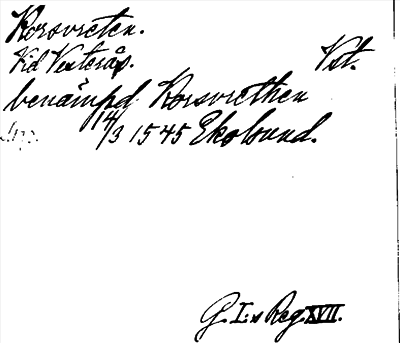 Korsvreten.
Vid Vesterås. Vst.
benämpd Korsvrethen
14/3 1545 Ekolsund.
G. I:s Reg. XVII.